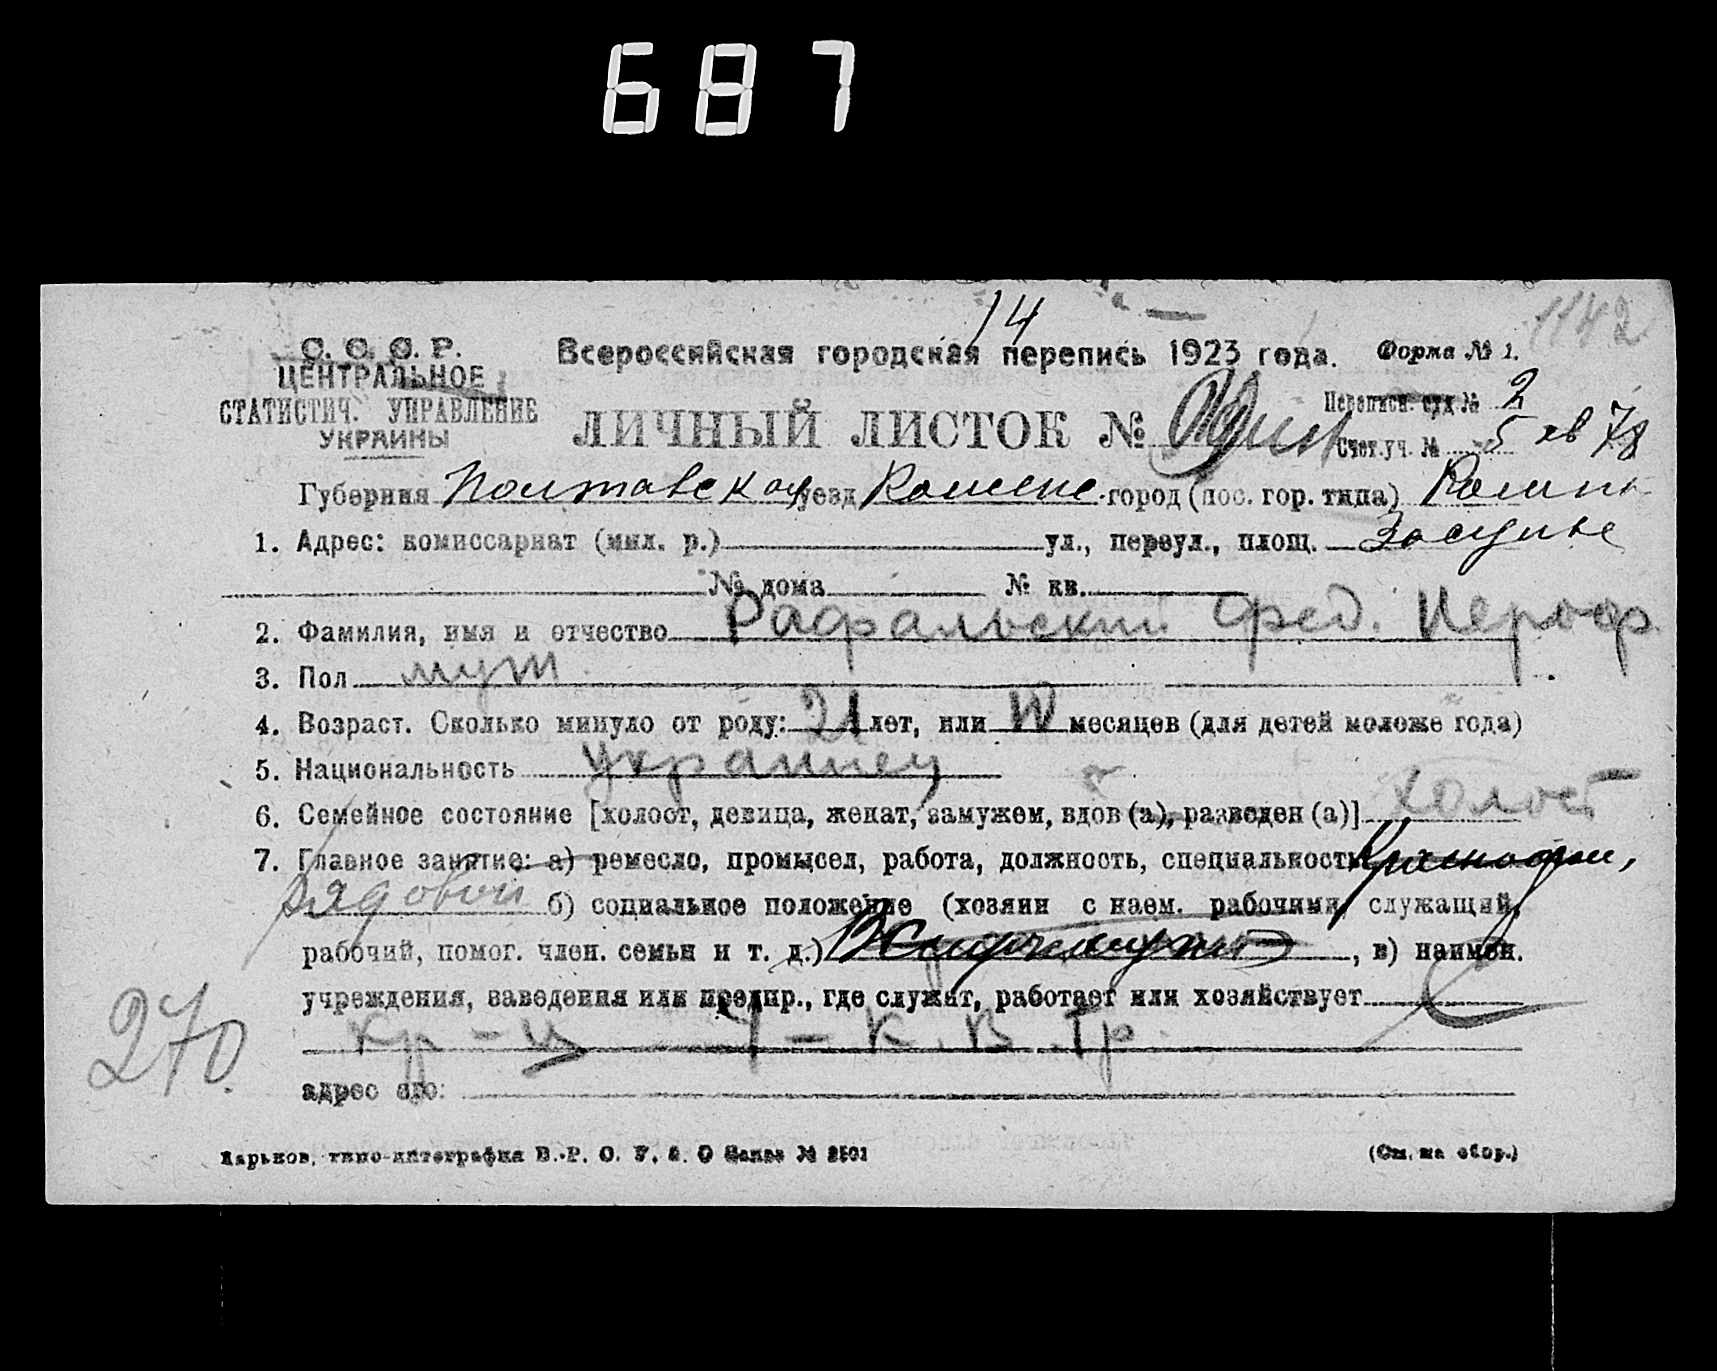 687
14
1142
С. С. С. Р. Всероссийская городская перепись 1923 года. Форма № 1.
ЦЕНТРАЛЬНОЕ
СТАТИСТИЧ. УПРАВЛЕНИЕ
УКРАИНЫ
ЛИЧНЫЙ ЛИСТОК №
Переписн. отд № 2
Счет. уч. № 5 кв 78
Губерния Полтавская уезд Роменс. город (пос. гор. типа) Ромны
1. Адрес: комиссариат (мил. р.) ул., переул., площ. Засулье
№ дома № кв.
2. Фамилия, имя и отчество Рафальский Фед. Иероф.
3. Пол муж
4. Возраст. Сколько минуло от роду: 21 лет, или месяцев (для детей моложе года)
5. Национальность украинец
6. Семейное состояние [холост, девица, женат, замужем, вдов (а), разведен (а)] холост
7. Главное занятие: а) ремесло, промысел, работа, должность, специальность Красноарм.,
рядовой б) социальное положение (хозяин с наем. рабочими, служащий,
рабочий, помог. член. семьи и т. д.) , в) наимен.
учреждения, заведения или предпр., где служит, работает или хозяйствует
270.
адрес его:
Харьков, типо-литография В.-Р. О. У. З. О Заказ № (См. на обор.)